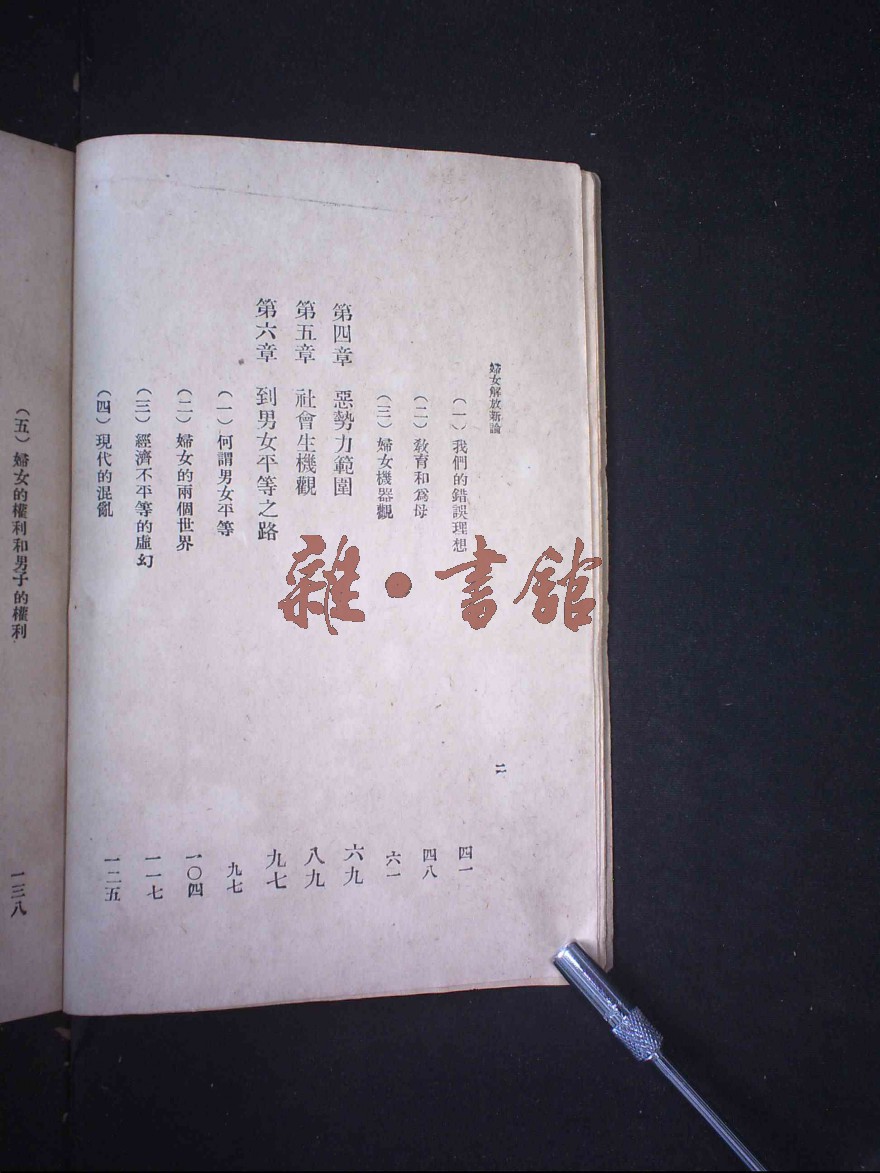 婦女解放新論
二
（一）我們的錯誤理想 四一
（二）教育和爲母 四八
（三）婦女機器觀 六一
第四章 惡勢力範圍 六九
第五章 社會生機觀 八九
第六章 到男女平等之路 九七
（一）何謂男女平等 九七
（二）婦女的兩個世界 一〇四
（三）經濟不平等的虛幻 一一七
（四）現代的混亂 一二五
（五）婦女的權利和男子的權利 一三八
雜・書館